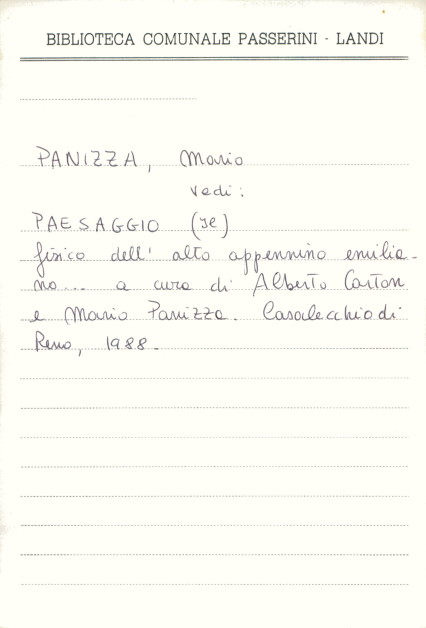 BIBLIOTECA COMUNALE PASSERINI - LANDI
PANIZZA, Mario
vedi:
PAESAGGIO (Il)
fisico dell'alto appennino emilia-
no... a cura di Alberto Carton
e Mario Panizza. Casalecchio di
Reno, 1988.